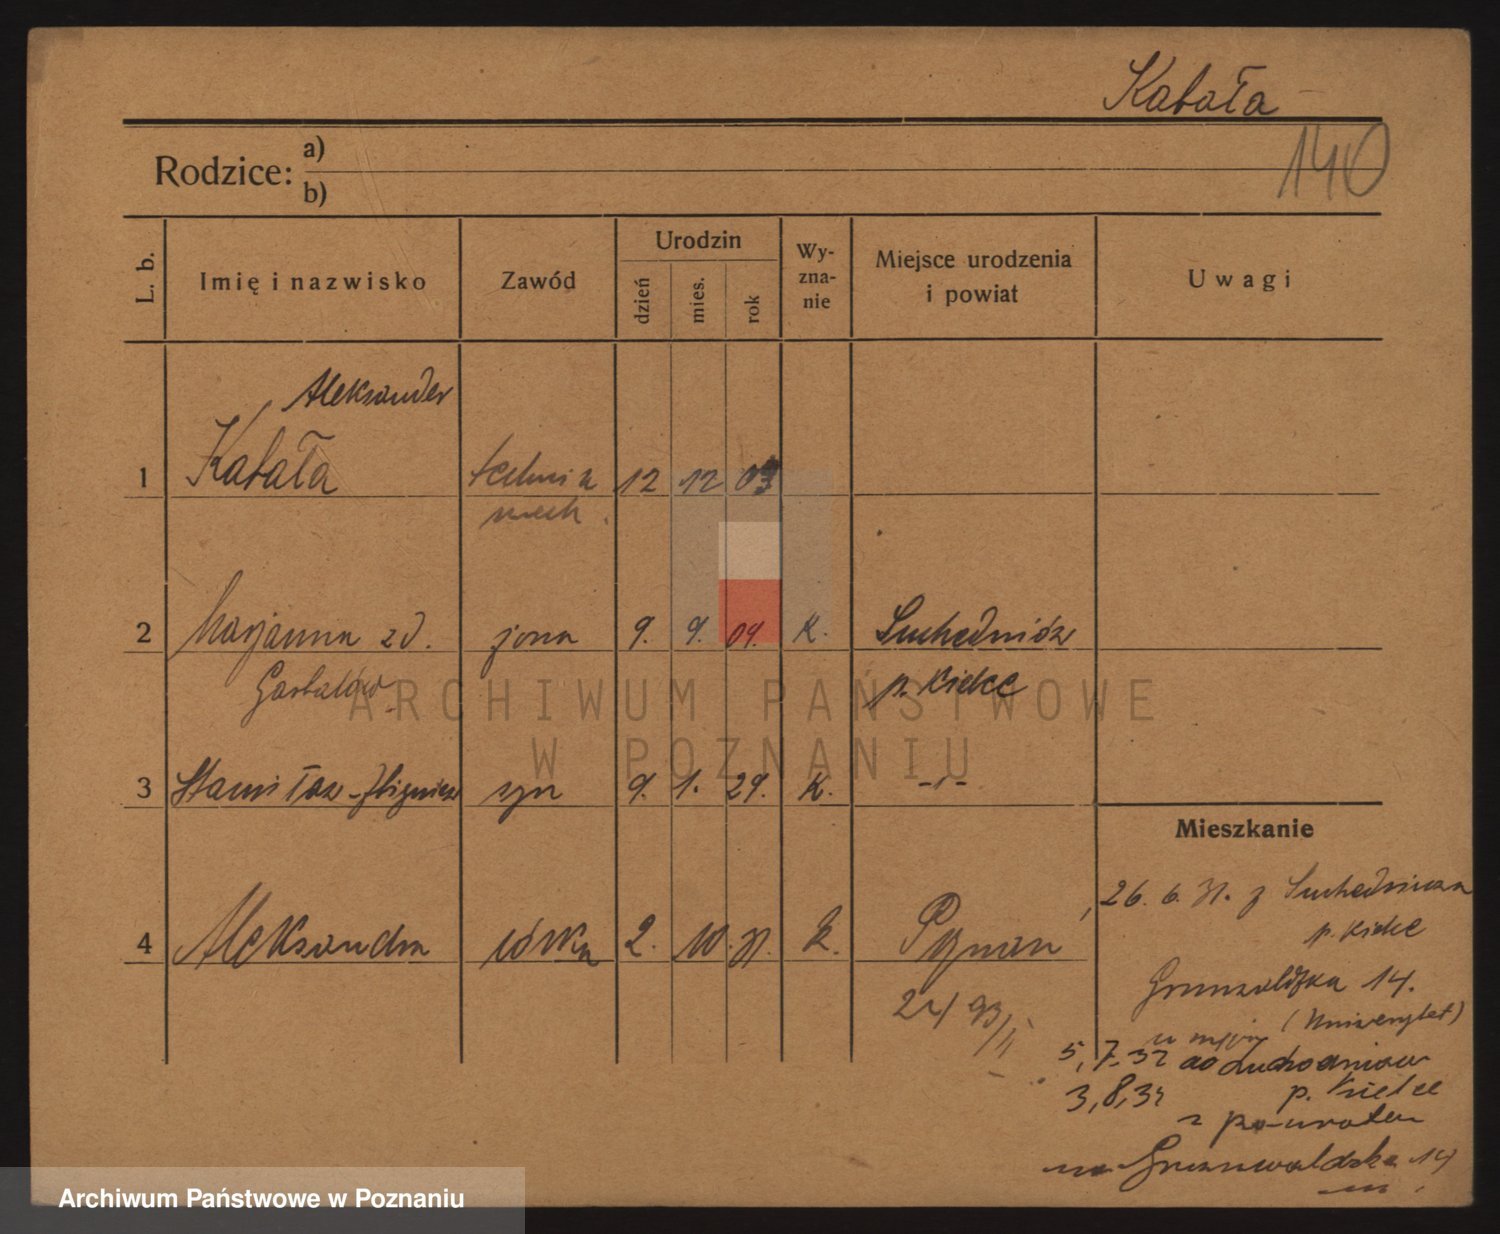 Kabała
140
Rodzice: a)
b)
L. b. Imię i nazwisko Zawód Urodzin dzień mies. rok Wy-zna-nie Miejsce urodzenia i powiat Uwagi
Aleksander
1 Kabała 12 12 03
mech.
2 Marjanna zd. żona 9. 9. 09. K. Suchedniów
p. Kielce
ARCHIWUM PAŃSTWOWE
W POZNANIU
3 Stanisław-Zbigniew syn 9. 1. 29. K. -"-
Mieszkanie
26. 6. 31. z Suchedniowa
p. Kielce
4 Aleksandra córka 2. 10. 31. k. Poznań
Grunwaldzka 14.
(Uniwersytet)
5,7.32 do Suchedniowa
p. Kielce
3,8,32
z powrotem
na Grunwaldzka 14
Archiwum Państwowe w Poznaniu